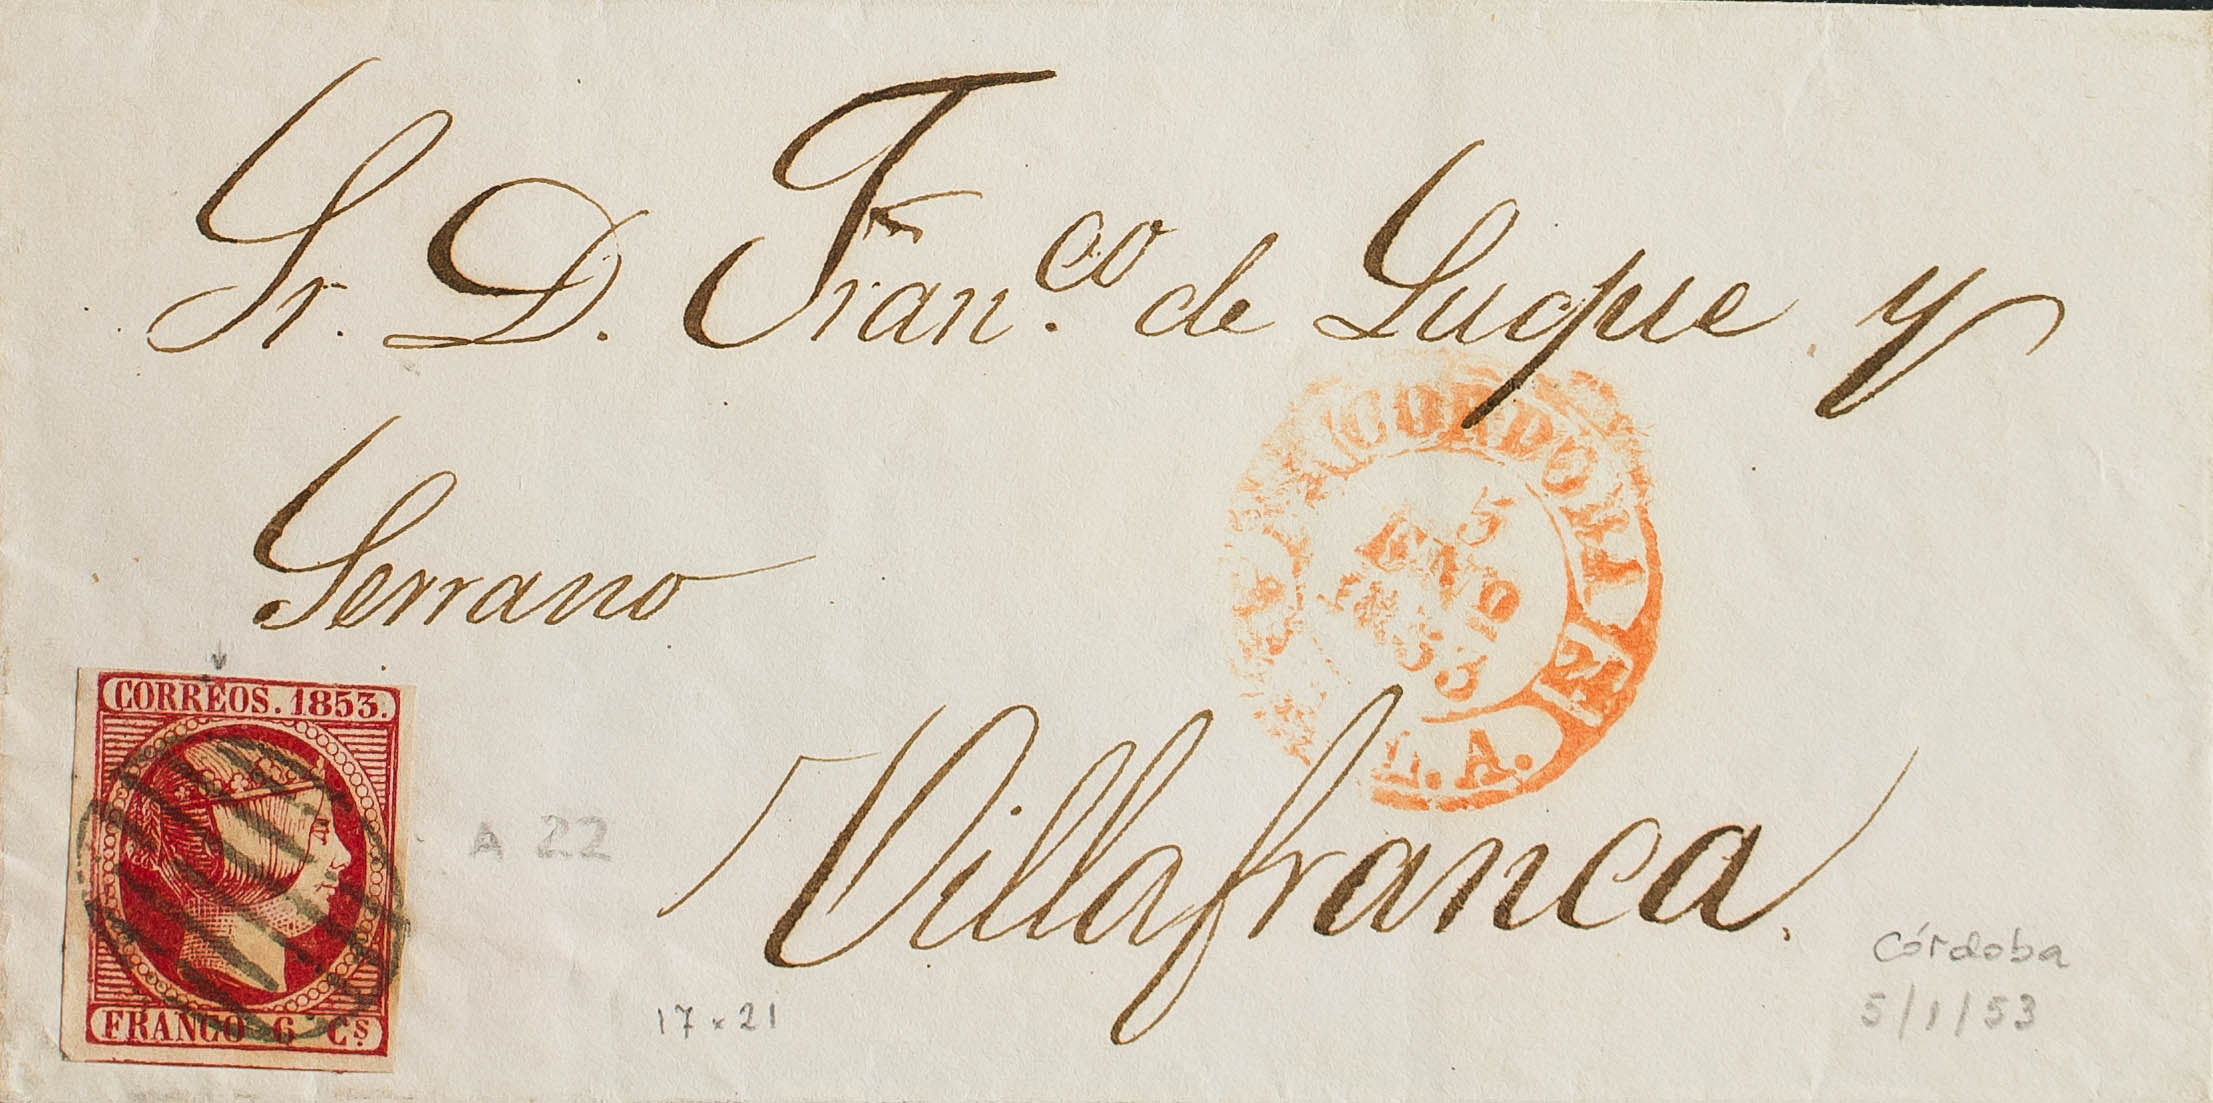 Sr. D. Fran.co de Luque y
Serrano
CORDOBA
5
ENO
1853
CORREOS. 1853.
A 22
Villafranca.
Córdoba
FRANCO 6 Cs
17 x 21
5/1/53